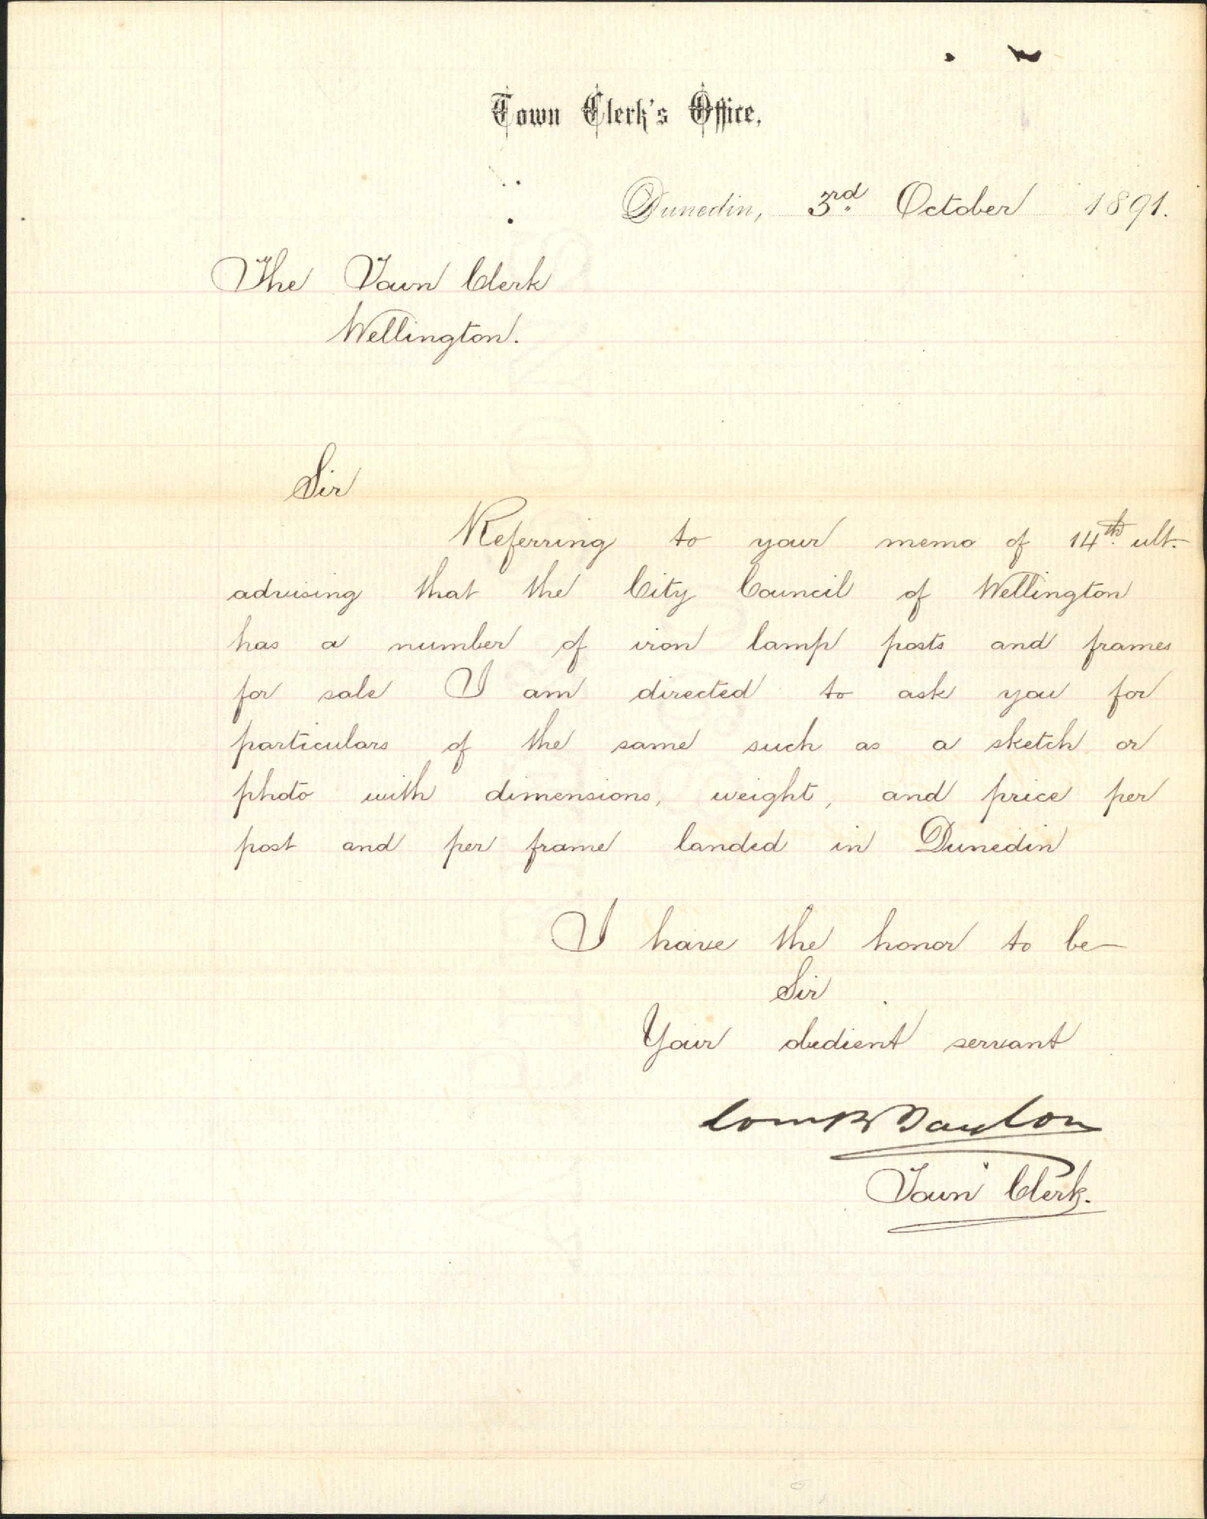 Town Clerk's Office,
Dunedin, 3rd. October 1891.
The Town Clerk
Wellington.
Sir
Referring to your memo of 14th. ult.
advising that the City Council of Wellington
has a number of iron lamp posts and frames
for sale I am directed to ask you for
particulars of the same such as a sketch or
photo with dimensions, weight, and price per
post and per frame landed in Dunedin
I have the honor to be
Sir
Your obedient servant
Wm B Taylor
Town Clerk.